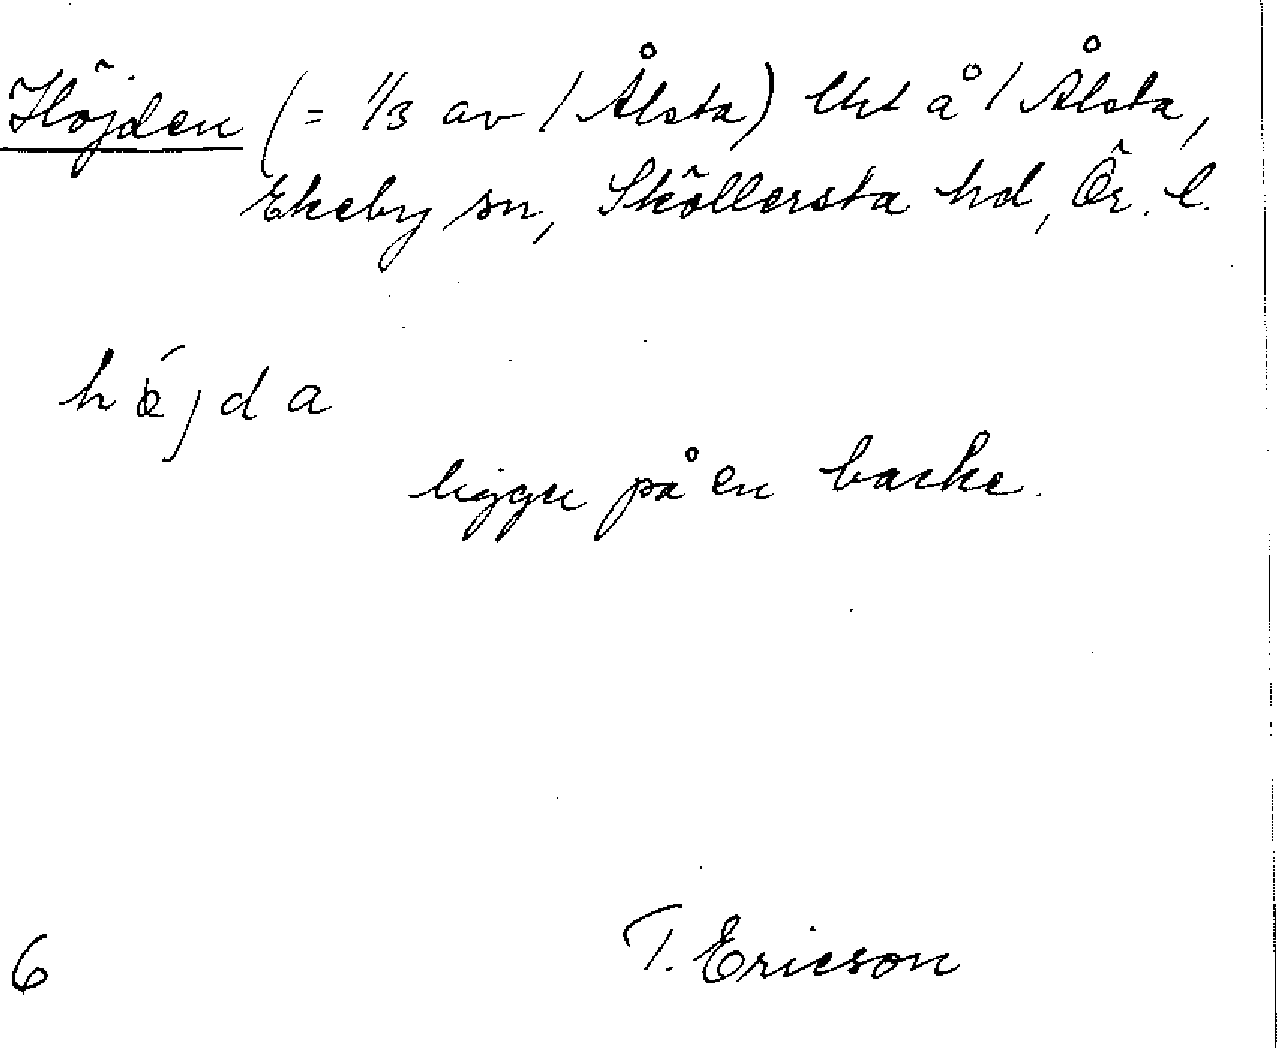 Höjden (= 1/3 av / Ålsta) lht å / Ålsta,
Ekeby sn, Sköllersta hd, Ör. l.
höjda
ligger på en backe.
6 T. Ericson